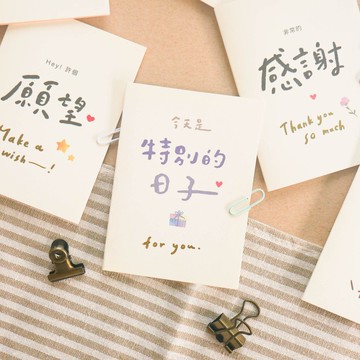 Hey! 許個
願望
Make a
wish—!
今天是
特別的
日子
for you.
非常的
感謝
Thank you
so much